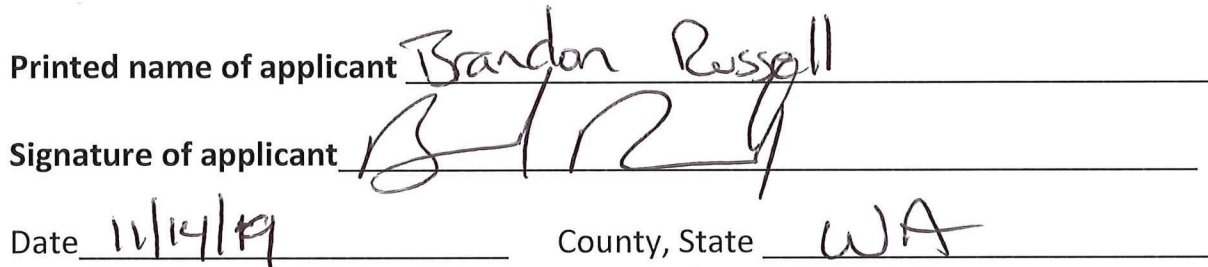 Printed name of applicant Brandon Russell
Signature of applicant
Date 11/14/19 County, State WA